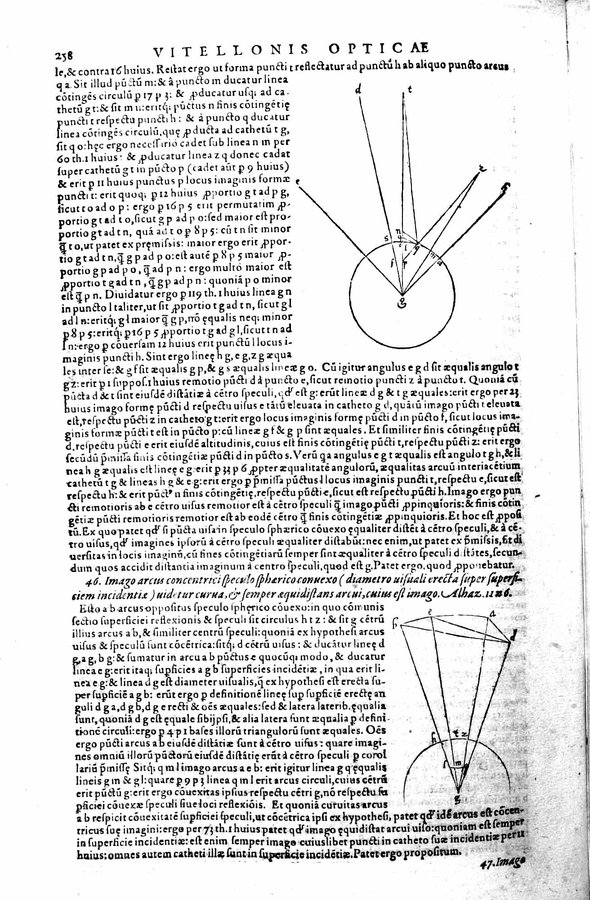 238 VITELLONIS OPTICAE
le, & contra 16 huius. Restat ergo ut forma puncti t reflectatur ad punctũ h ab aliquo puncto arcus
q a. Sit illud pũctũ m: & à puncto m ducatur linea
cõtingẽs circulũ p 17 p 3: & ꝓducatur usq; ad ca-
thetũ g t: & sit m n: eritq; pũctus n finis cõtingẽtię
puncti t respectu puncti h: & à puncto q ducatur
linea cõtingens circulũ, quę ꝓducta ad cathetũ t g,
sit q o: hęc ergo necessariò cadet sub linea n m per
60 th. 1 huius: & ꝓducatur linea z q donec cadat
super cathetũ g t in pũcto p (cadet aũt p 9 huius)
& erit p 11 huius punctus p locus imaginis formæ
puncti t: erit quoq; p 12 huius ꝓportio g t ad p g,
sicut t o ad o p: ergo p 16 p 5 erit permutatim ꝓ-
portio g t ad t o, sicut g p ad p o: sed maior est pro-
portio g t ad t n, quã ad t o p 8 p 5: cũ t n sit minor
q̃ t o, ut patet ex pręmissis: maior ergo erit ꝓpor-
tio g t ad t n, q̃ g p ad p o: est autẽ p 8 p 5 maior ꝓ-
portio g p ad p o, q̃ ad p n: ergo multò maior est
ꝓportio g t ad t n, q̃ g p ad p n: quoniã p o minor
est q̃ p n. Diuidatur ergo p 119 th. 1 huius linea g n
in puncto l taliter, ut sit ꝓportio g t ad t n, sicut g l
ad l n: eritq; g l maior q̃ g p, nõ ęqualis neq; minor
p 8 p 5: eritq; p 16 p 5 ꝓportio t g ad g l, sicut t n ad
l n: ergo p cõuersam 12 huius erit punctũ l locus i-
maginis puncti h. Sint ergo lineę h g, e g, z g æqua
les inter se: & g f sit æqualis g p, & g s æqualis lineæ g o. Cũ igitur angulus e g d sit æqualis angulo t
g z: erit p 1 suppos. 1 huius remotio pũcti d à puncto e, sicut remotio puncti z à puncto t. Quoniã cũ
pũcta d & t sint eiusdẽ distãtiæ à cẽtro speculi, qđ est g: erũt lineæ d g & t g æquales: erit ergo per 23
huius imago formę pũcti d respectu uisus e tãtũ eleuata in catheto g d, quãtũ imago pũcti t eleuata
est, respectu pũcti z in catheto g t: erit ergo locus imaginis formæ pũcti d in pũcto f, sicut locus ima-
ginis formæ pũcti t est in pũcto p: cũ lineæ g f & g p sint æquales. Et similiter finis cõtingẽtię pũcti
d, respectu pũcti e erit eiusdẽ altitudinis, cuius est finis cõtingẽtię pũcti t, respectu pũcti z: erit ergo
secũdũ p̃missa finis cõtingẽtiæ pũcti d in pũcto s. Verũ qa angulus e g t æqualis est angulo t g h, & li
nea h g æqualis est lineę e g: erit p 33 p 6 ꝓpter æqualitatẽ angulorũ, æqualitas arcuũ interiacẽtium
cathetũ t g & lineas h g & e g: erit ergo p p̃missa pũctus l locus imaginis puncti t, respectu e, sicut est
respectu h: & erit pũctus n finis cõtingẽtię, respectu pũcti e, sicut est respectu pũcti h. Imago ergo pun
cti remotioris ab e cẽtro uisus remotior est à cẽtro speculi q̃ imago pũcti ꝓpinquioris: & finis cõtin
gẽtiæ pũcti remotioris remotior est ab eodẽ cẽtro q̃ finis cõtingẽtiæ ꝓpinquioris. Et hoc est ꝓposi
tũ. Ex quo patet qđ si pũcta uisa in speculo sphærico cõuexo æqualiter distẽt à cẽtro speculi, & à cẽ-
tro uisus, qđ imagines ipsorũ à cẽtro speculi æqualiter distabũt: nec enim, ut patet ex p̃missis, fit di
uersitas in locis imaginũ, cũ fines cõtingẽtiarũ semper sint æqualiter à cẽtro speculi distãtes, secun-
dum quos accidit distantia imaginum à centro speculi, quod est g. Patet ergo, quod ꝓponebatur.
46. Imago arcus concentrici speculo sphærico conuexo (diametro uisuali erecta super superfi-
ciem incidentiæ) uidetur curua, & semper æquidistans arcui, cuius est imago. Alhaz. 11 n 6.
Esto a b arcus oppositus speculo sphęrico cõuexo: in quo cõmunis
sectio superficiei reflexionis & speculi sit circulus h t z: & sit g cẽtrũ
illius arcus a b, & similiter centrũ speculi: quoniã ex hypothesi arcus
uisus & speculũ sunt cõcẽtrica: sitq; d cẽtrũ uisus: & ducãtur lineę d
g, a g, b g: & sumatur in arcu a b pũctus e quocũq; modo, & ducatur
linea e g: erit itaq; supficies a g b superficies incidẽtiæ, in qua erit li-
nea e g: & linea d g est diameter uisualis, q̃ ex hypothesi est erecta su-
per supficiẽ a g b: erũt ergo p definitionẽ lineę sup supficiẽ erectę an
guli d g a, d g b, d g e recti & oẽs æquales: sed & latera laterib. ęqualia
sunt, quoniã d g est equale sibijpsi, & alia latera sunt æqualia p defini-
tionẽ circuli: ergo p 4 p 1 bases illorũ triangulorũ sunt æquales. Oẽs
ergo pũcti arcus a b eiusdẽ distãtiæ sunt à cẽtro uisus: quare imagi-
nes omniũ illorũ pũctorũ eiusdẽ distãtię erũt à cẽtro speculi p corol
lariũ p̃missę. Sitq; q m l imago arcus a e b: erit igitur linea g q ęqualis
lineis g m & g l: quare p 9 p 3 linea q m l erit arcus circuli, cuius cẽtrũ
erit pũctũ g: erit ergo cõuexitas ipsius respectu cẽtri g, nõ respectu su
pficiei cõuexæ speculi siue loci reflexiõis. Et quoniã curuitas arcus
a b respicit cõuexitatẽ supficiei speculi, ut cõcẽtrica ipsi ex hypothesi, patet qđ idẽ arcus est cõcen-
tricus suę imagini: ergo per 73 th. 1 huius patet qđ imago ęquidistat arcui uiso: quoniam est semper
in superficie incidentiæ: est enim semper imago cuiuslibet puncti in catheto suæ incidentiæ per 11
huius: omnes autem catheti illæ sunt in superficie incidẽtiæ. Patet ergo propositum.
47. Imago